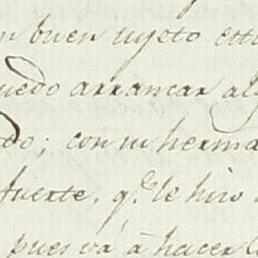 n buen sujeto esti
uedo arrancar alg
do; con su herma
fuerte, q.e le hizo
pues vá á hacer l